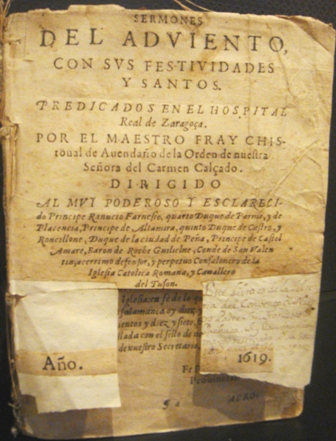 SERMONES
DEL ADVIENTO,
CON SVS FESTIVIDADES
Y SANTOS.
PREDICADOS EN EL HOSPITAL
Real de Zaragoça,
POR EL MAESTRO FRAY CHIS-
toual de Auendaño de la Orden de nuestra
Señora del Carmen Calçado.
DIRIGIDO
AL MVI PODEROSO Y ESCLARECI-
do Principe Ranucio Farnesio, quarto Duque de Parma, y de
Placencia, Principe de Altamura, quinto Duque de Castro, y
Roncillone, Duque de la ciudad de Peña, Principe de Castel
Amare, Baron de Roche Guilielme, Conde de San Valen
tin, acerrimo defensor, y perpetuo Confalonero de la
Iglesia Catolica Romana, y Cauallero
del Tuson.
Iglesia, en fe de lo
Salamanca oy diez, y
cientos y diez, y siete,
llada con el sello de
de nuestro Secretario
Año.
1619.